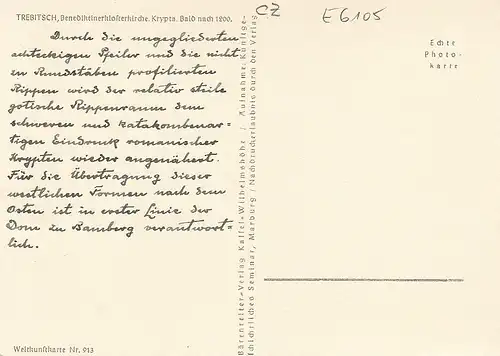 TREBITSCH, Benediktinerklosterkirche. Krypta. Bald nach 1200.
Durch die ungegliederten
achteckigen Pfeiler und die nicht
zu Rundstäben profilierten
Rippen wird der relativ steile
gotische Rippenraum dem
schweren und katakombenar=
tigen Eindruck romanischer
Krypten wieder angenähert.
Für die Übertragung dieser
westlichen Formen nach dem
Osten ist in erster Linie der
Dom zu Bamberg verantwort=
lich.
Weltkunstkarte Nr. 913
Bärenreiter-Verlag Kassel-Wilhelmshöhe / Aufnahme: Kunstge-
schichtliches Seminar, Marburg / Nachdruckerlaubnis durch den Verlag
CZ
E6105
Echte
Photo-
karte